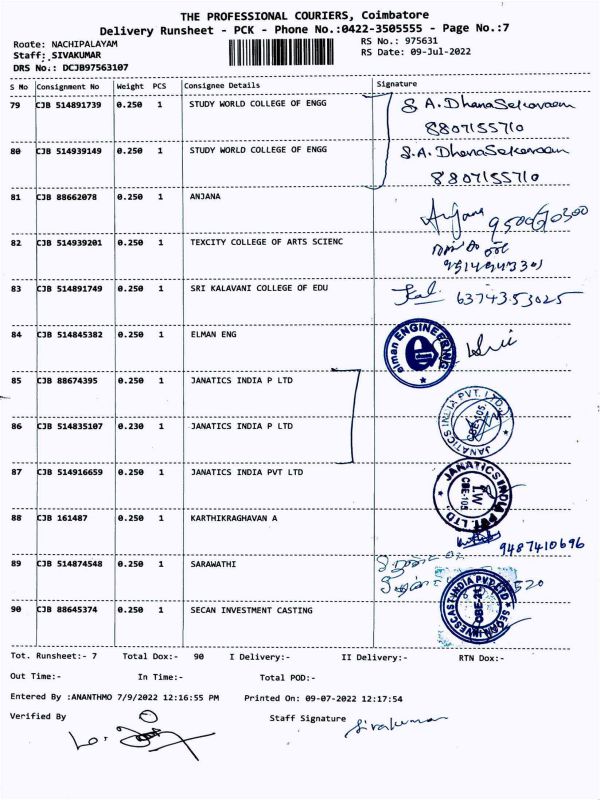 THE PROFESSIONAL COURIERS, Coimbatore
Delivery Runsheet - PCK - Phone No.:0422-3505555 - Page No.:7
Roote: NACHIPALAYAM RS No.: 975631
Staff: SIVAKUMAR RS Date: 09-Jul-2022
DRS No.: DCJB97563107
S Mo Consignment No Weight PCS Consignee Details Signature
79 CJB 514891739 0.250 1 STUDY WORLD COLLEGE OF ENGG S.A. DhanaSekaraem
8807155710
80 CJB 514939149 0.250 1 STUDY WORLD COLLEGE OF ENGG S.A. DhanaSekaraem
8807155710
81 CJB 88662078 0.250 1 ANJANA Anjana
82 CJB 514939201 0.250 1 TEXCITY COLLEGE OF ARTS SCIENC
83 CJB 514891749 0.250 1 SRI KALAVANI COLLEGE OF EDU Kal. 6374353025
84 CJB 514845382 0.250 1 ELMAN ENG elman ENGINEERING
85 CJB 88674395 0.250 1 JANATICS INDIA P LTD
86 CJB 514835107 0.230 1 JANATICS INDIA P LTD JANATICS INDIA PVT. LTD. CBE-105
87 CJB 514916659 0.250 1 JANATICS INDIA PVT LTD JANATICS INDIA PVT. LTD. LW CBE-105
88 CJB 161487 0.250 1 KARTHIKRAGHAVAN A 9487410696
89 CJB 514874548 0.250 1 SARAWATHI
90 CJB 88645374 0.250 1 SECAN INVESTMENT CASTING
Tot. Runsheet:- 7 Total Dox:- 90 I Delivery:- II Delivery:- RTN Dox:-
Out Time:- In Time:- Total POD:-
Entered By :ANANTHMO 7/9/2022 12:16:55 PM Printed On: 09-07-2022 12:17:54
Verified By Staff Signature Sivakumar